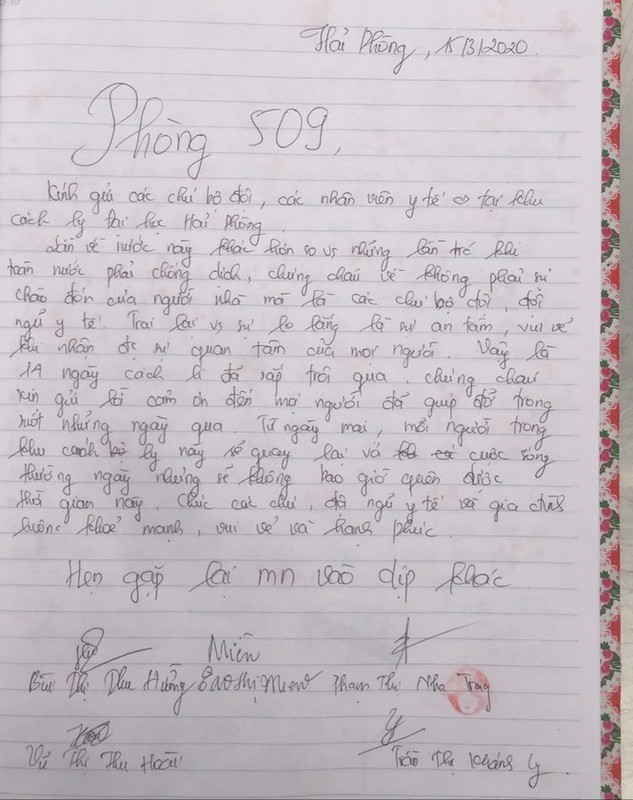 Hải Phòng, 15/3/2020.
Phòng 509,
Kính gửi các chú bộ đội, các nhân viên y tế tại khu
cách ly tại học Hải Phòng.
Lần về nước này khác hơn so vs những lần trc khi
toàn nước phải chống dịch, chúng cháu về không phải sự
chào đón của người nhà mà là các chú bộ đội, đội
ngũ y tế. Trái lại vs sự lo lắng là sự an tâm, vui vẻ
khi nhận đc sự quan tâm của mọi người. Vậy là
14 ngày cách li đã sắp trôi qua. chúng cháu
xin gửi lời cảm ơn đến mọi người đã giúp đỡ trong
suốt những ngày qua. Từ ngày mai, mỗi người trong
khu cách ly này sẽ quay lại vs cuộc sống
thường ngày nhưng sẽ không bao giờ quên được
thời gian này. Chúc các chú, đội ngũ y tế và gia đình
luôn khoẻ mạnh, vui vẻ và hạnh phúc.
Hẹn gặp lại mn vào dịp khác
Miên
Bùi Thị Thu Hường Phạm Thị Nha Trang
Vũ Thị Thu Hoài Trần Thị Khánh Ly